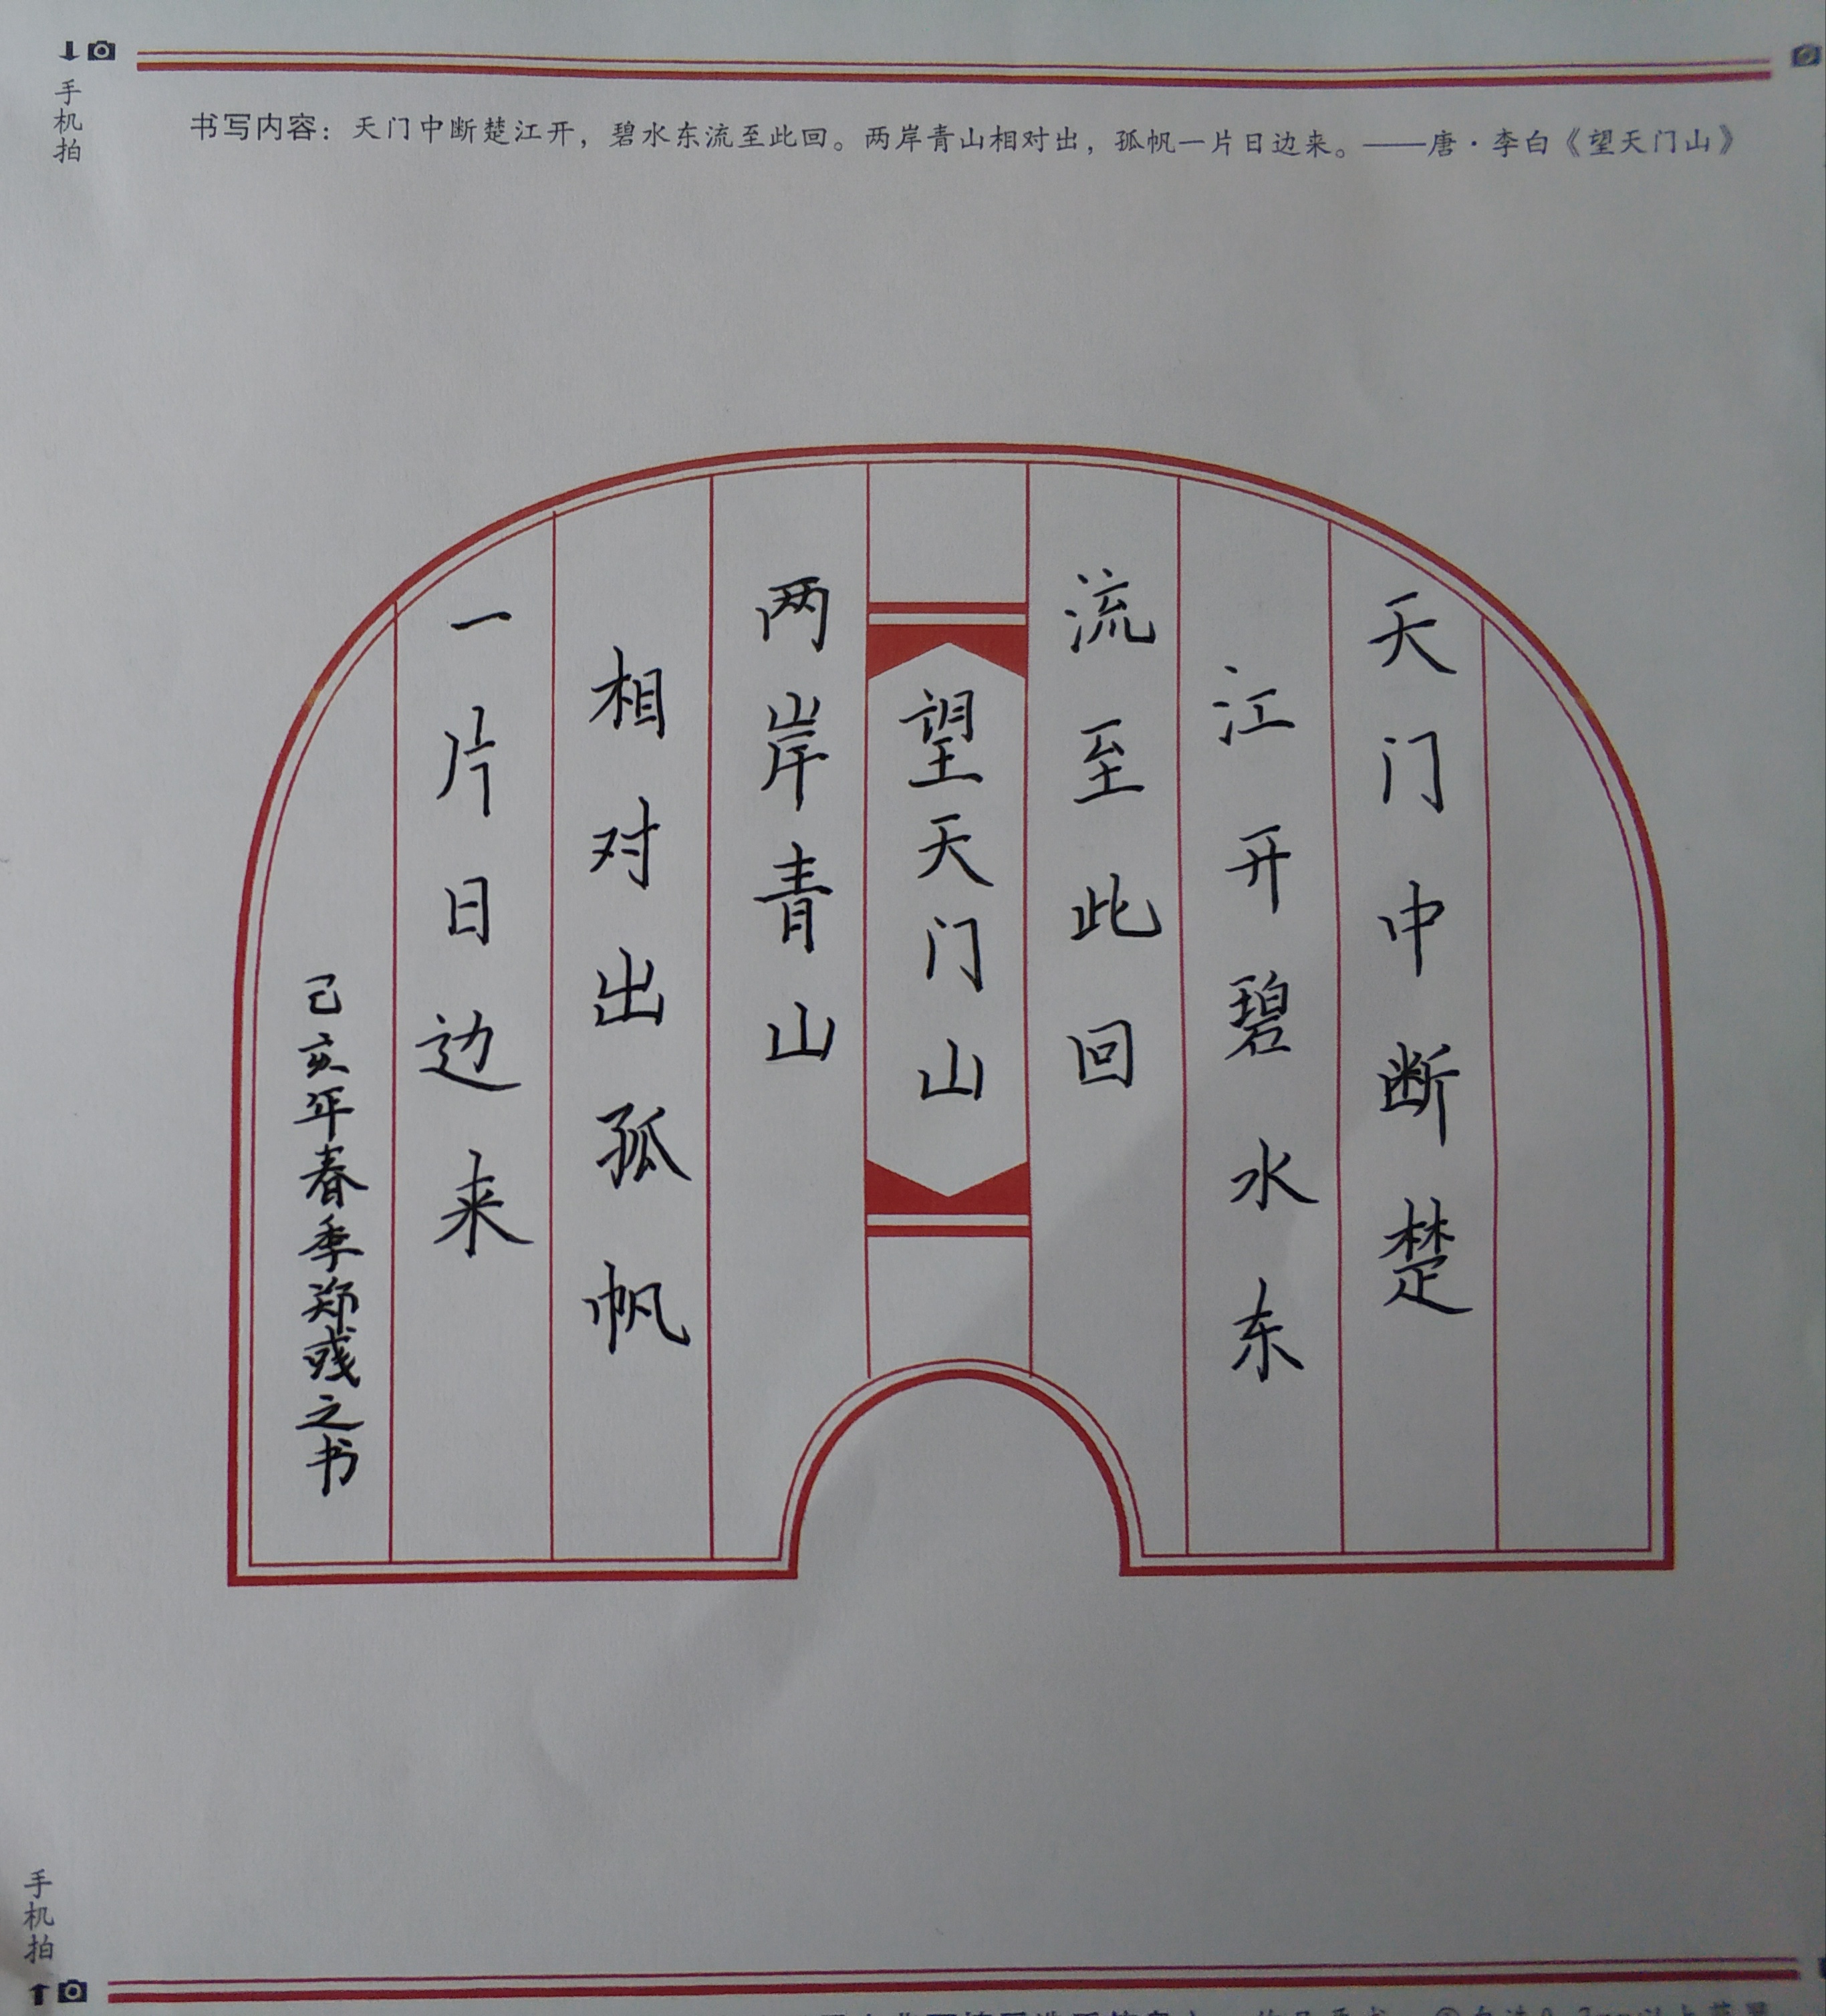 手机拍
书写内容：天门中断楚江开，碧水东流至此回。两岸青山相对出，孤帆一片日边来。——唐·李白《望天门山》
天门中断楚
江开碧水东
流至此回
望天门山
两岸青山
相对出孤帆
一片日边来
己亥年春季郑彧之书
手机拍